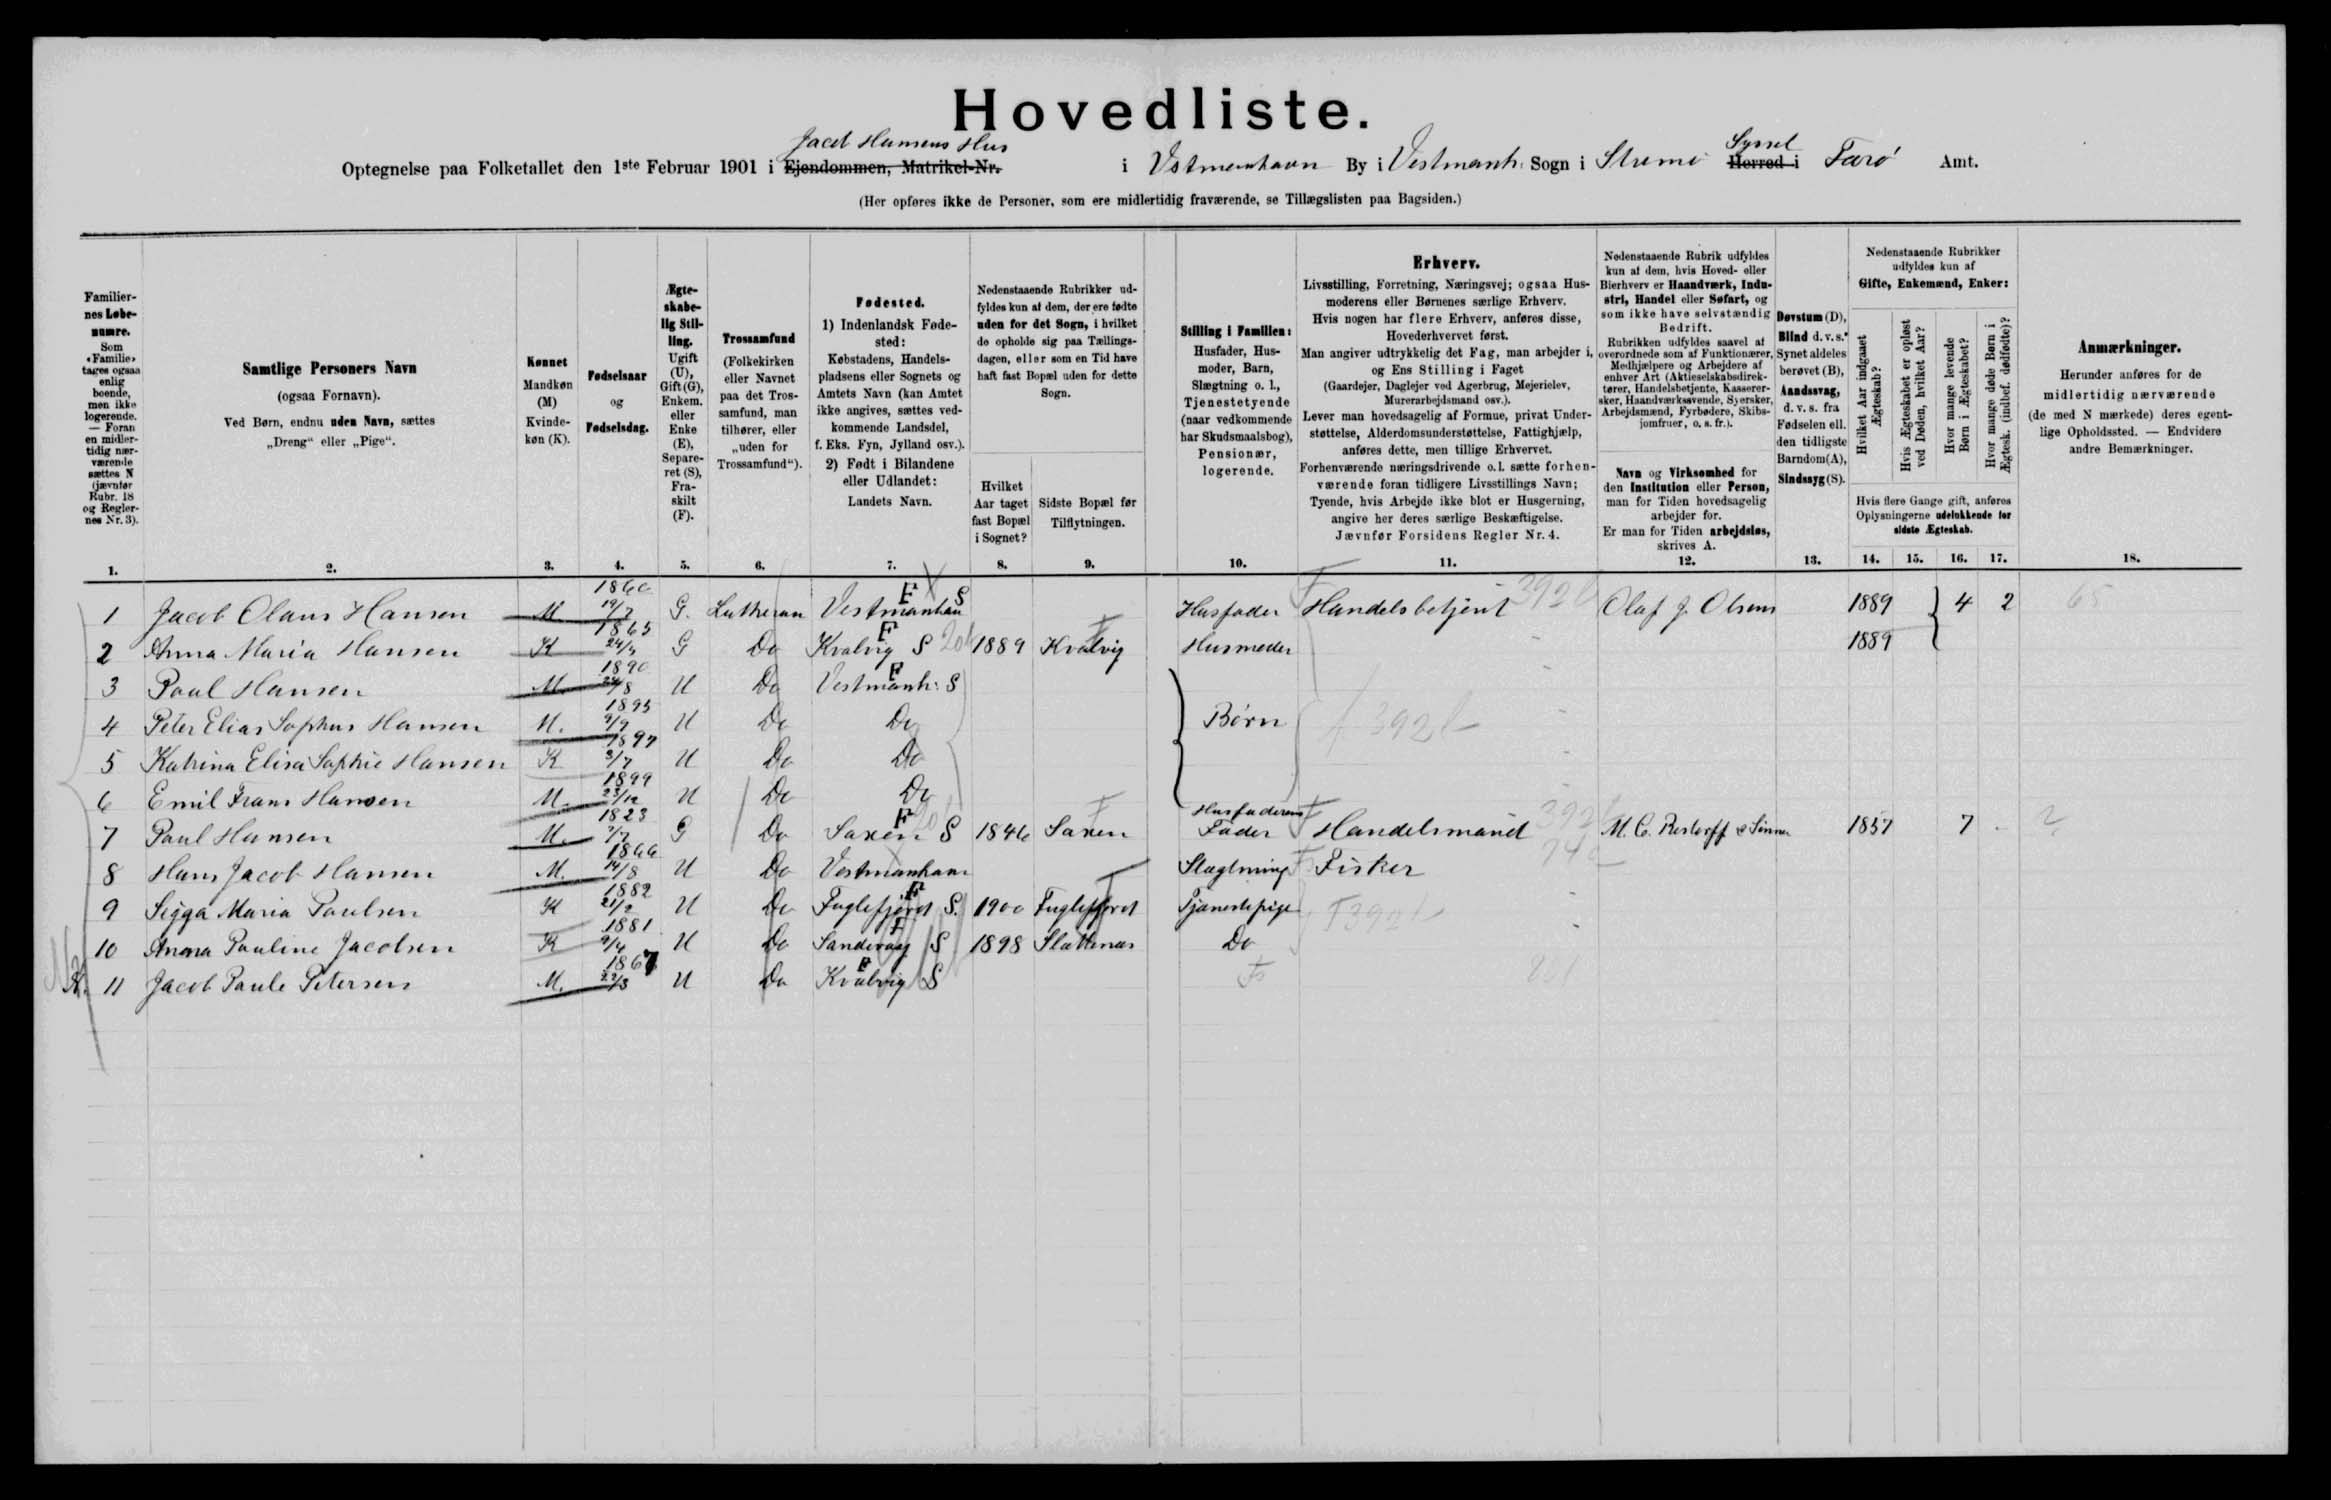 Hovedliste.
Jacob Hansens Hus
Optegnelse paa Folketallet den 1ste Februar 1901 i Ejendommen, Matrikel-Nr. i Vestmanhavn By i Vestmanh: Sogn i Strømø Syssel Herred i Færø Amt.
(Her opføres ikke de Personer, som ere midlertidig fraværende, se Tillægslisten paa Bagsiden.)
Familiernes Løbenumre. Som «Familie» tages ogsaa enlig boende, men ikke logerende. — Foran en midlertidig nærværende sættes N (jævnfør Rubr. 18 og Reglernes Nr. 3).
Samtlige Personers Navn
(ogsaa Fornavn).
Ved Børn, endnu uden Navn, sættes „Dreng“ eller „Pige“.
Kønnet Mandkøn (M) Kvindekøn (K).
Fødselsaar og Fødselsdag.
Ægteskabelig Stilling. Ugift (U), Gift (G), Enkem. eller Enke (E), Separeret (S), Fraskilt (F).
Trossamfund (Folkekirken eller Navnet paa det Trossamfund, man tilhører, eller „uden for Trossamfund“).
Fødested.
1) Indenlandsk Fødested: Købstadens, Handelspladsens eller Sognets og Amtets Navn (kan Amtet ikke angives, sættes vedkommende Landsdel, f. Eks. Fyn, Jylland osv.).
2) Født i Bilandene eller Udlandet: Landets Navn.
Nedenstaaende Rubrikker udfyldes kun af dem, der ere fødte uden for det Sogn, i hvilket de opholde sig paa Tællingsdagen, eller som en Tid have haft fast Bopæl uden for dette Sogn.
Hvilket Aar taget fast Bopæl i Sognet?
Sidste Bopæl før Tilflytningen.
Stilling i Familien: Husfader, Husmoder, Barn, Slægtning o. l., Tjenestetyende (naar vedkommende har Skudsmaalsbog), Pensionær, logerende.
Erhverv.
Livsstilling, Forretning, Næringsvej; ogsaa Husmoderens eller Børnenes særlige Erhverv.
Hvis nogen har flere Erhverv, anføres disse, Hovederhvervet først.
Man angiver udtrykkelig det Fag, man arbejder i, og Ens Stilling i Faget
(Gaardejer, Daglejer ved Agerbrug, Mejerielev, Murerarbejdsmand osv.).
Lever man hovedsagelig af Formue, privat Understøttelse, Alderdomsunderstøttelse, Fattighjælp, anføres dette, men tillige Erhvervet.
Forhenværende næringsdrivende o. l. sætte forhenværende foran tidligere Livsstillings Navn; Tyende, hvis Arbejde ikke blot er Husgerning, angive her deres særlige Beskæftigelse.
Jævnfør Forsidens Regler Nr. 4.
Nedenstaaende Rubrik udfyldes kun af dem, hvis Hoved- eller Bierhverv er Haandværk, Industri, Handel eller Søfart, og som ikke have selvstændig Bedrift.
Rubrikken udfyldes saavel af overordnede som af Funktionærer, Medhjælpere og Arbejdere af enhver Art (Aktieselskabsdirektører, Handelsbetjente, Kasserersker, Haandværkssvende, Syersker, Arbejdsmænd, Fyrbødere, Skibsjomfruer, o. s. fr.).
Navn og Virksomhed for den Institution eller Person, man for Tiden hovedsagelig arbejder for.
Er man for Tiden arbejdsløs, skrives A.
Døvstum (D), Blind d. v. s. Synet aldeles berøvet (B), Aandssvag, d. v. s. fra Fødselen ell. den tidligste Barndom (A), Sindssyg (S).
Nedenstaaende Rubrikker udfyldes kun af Gifte, Enkemænd, Enker:
Hvilket Aar indgaaet Ægteskab?
Hvis Ægteskabet er opløst ved Døden, hvilket Aar?
Hvor mange levende Børn i Ægteskabet?
Hvor mange døde Børn i Ægtesk. (indbef. dødfødte)?
Hvis flere Gange gift, anføres Oplysningerne udelukkende for sidste Ægteskab.
Anmærkninger.
Herunder anføres for de midlertidig nærværende (de med N mærkede) deres egentlige Opholdssted. — Endvidere andre Bemærkninger.
1. 2. 3. 4. 5. 6. 7. 8. 9. 10. 11. 12. 13. 14. 15. 16. 17. 18.
1 Jacob Olaus Hansen M 1860 19/7 G. Lutheran Vestmanhan F S Husfader Handelsbetjent 392 b Olaf J. Olsens 1889 4 2 65
2 Anna Maria Hansen K 1865 G Do Kvalvig F S 1889 Kvalvig Husmoder 1889
3 Poul Hansen M. 1890 U Do Vestmanh: F S
4 Peter Elias Sophus Hansen M. 1895 9/9 U Do Do Børn 392 b
5 Katrina Elisa Sophie Hansen K 1897 3/7 U Do Do
6 Emil Frans Hansen M. 1899 23/12 U Do Do
7 Poul Hansen M. 1823 G Do Saxen F S 1846 Saxen Husfaderens Fader Handelsmand 392 b M. C. Restorff & Sønner 1857 7 - ?
8 Hans Jacob Hansen M. 1866 14/8 U Do Vestmanhavn Slægtning Fisker
9 Sigga Maria Poulsen K 1882 21/2 U Do Fuglefjord F S. 1900 Fuglefjord Tjenestepige 392 b
10 Anna Pauline Jacobsen K 1881 9/4 U Do Sandevaag F S 1898 Slættenæs Do
11 Jacob Paule Petersen M. 1867 22/3 U Do Kvalvig F S